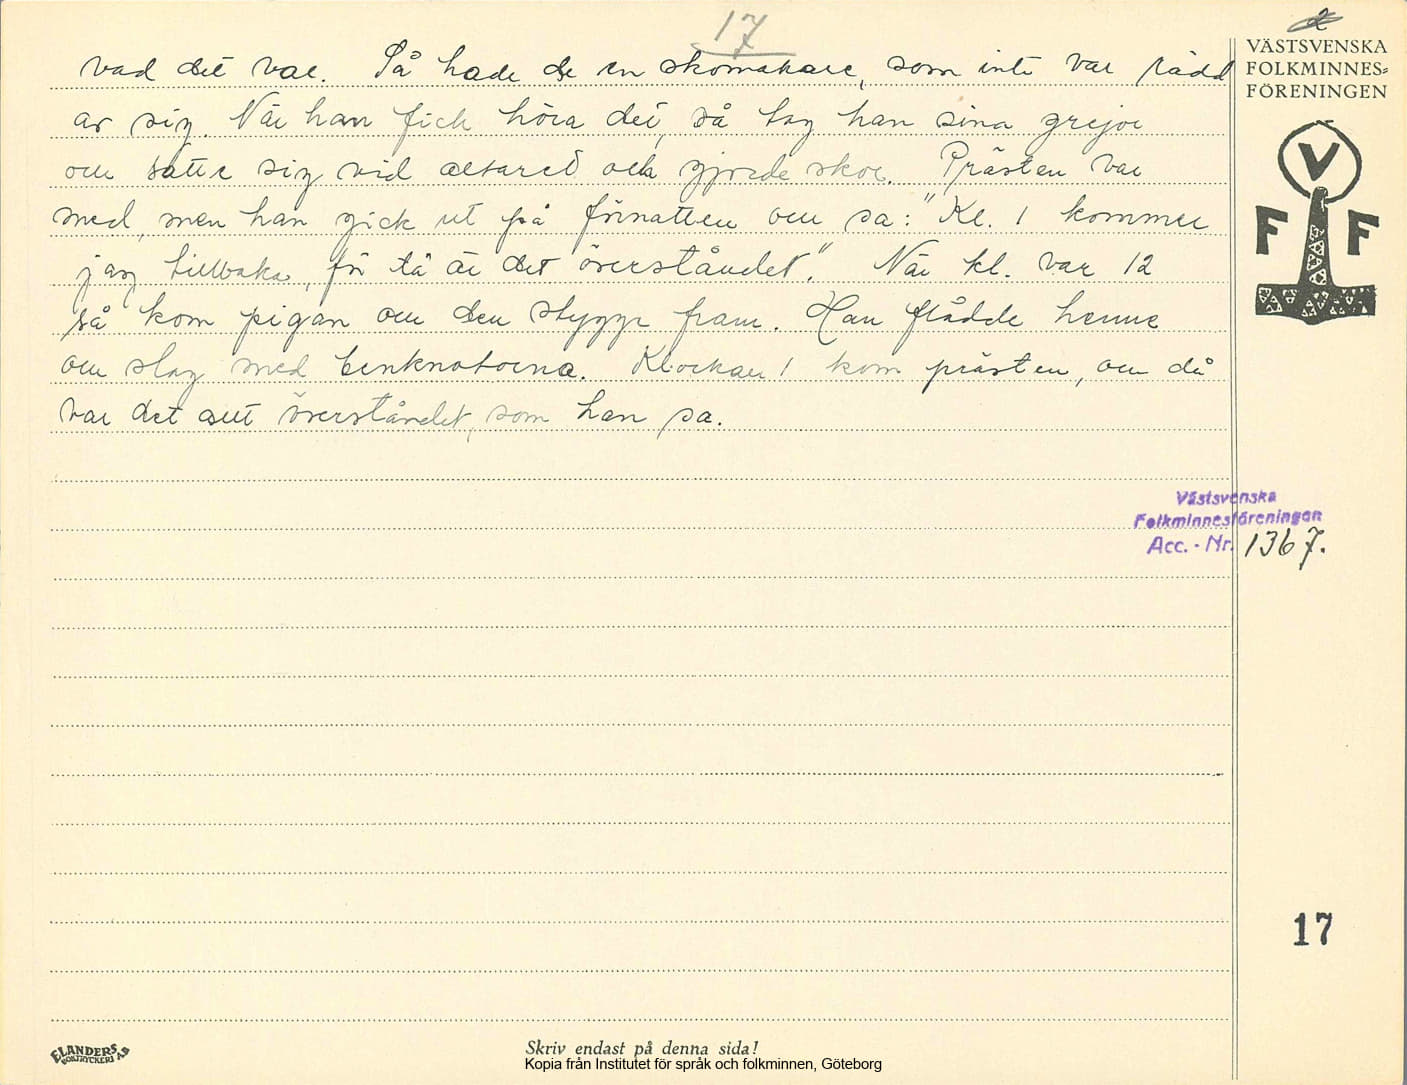 17
2
VÄSTSVENSKA
FOLKMINNES=
FÖRENINGEN
V
F F
vad det var. Så hade de en skomakare, som inte var rädd
av sig. När han fick höra det, så tog han sina grejor
och satte sig vid altaret och gjorde skor. Prästen var
med, men han gick ut på förnatten och sa: "Kl. 1 kommer
jag tillbaka, för tå är det överståndet." När kl. var 12
så kom pigan och den stygge fram. Han flådde henne
och slog med benknotorna. Klockan 1 kom prästen, och då
var det allt överståndet, som han sa.
Västsvenska
Folkminnesföreningen
Acc. - Nr. 1367.
17
ELANDERS
BOKTRYCKERI AB
Skriv endast på denna sida!
Kopia från Institutet för språk och folkminnen, Göteborg